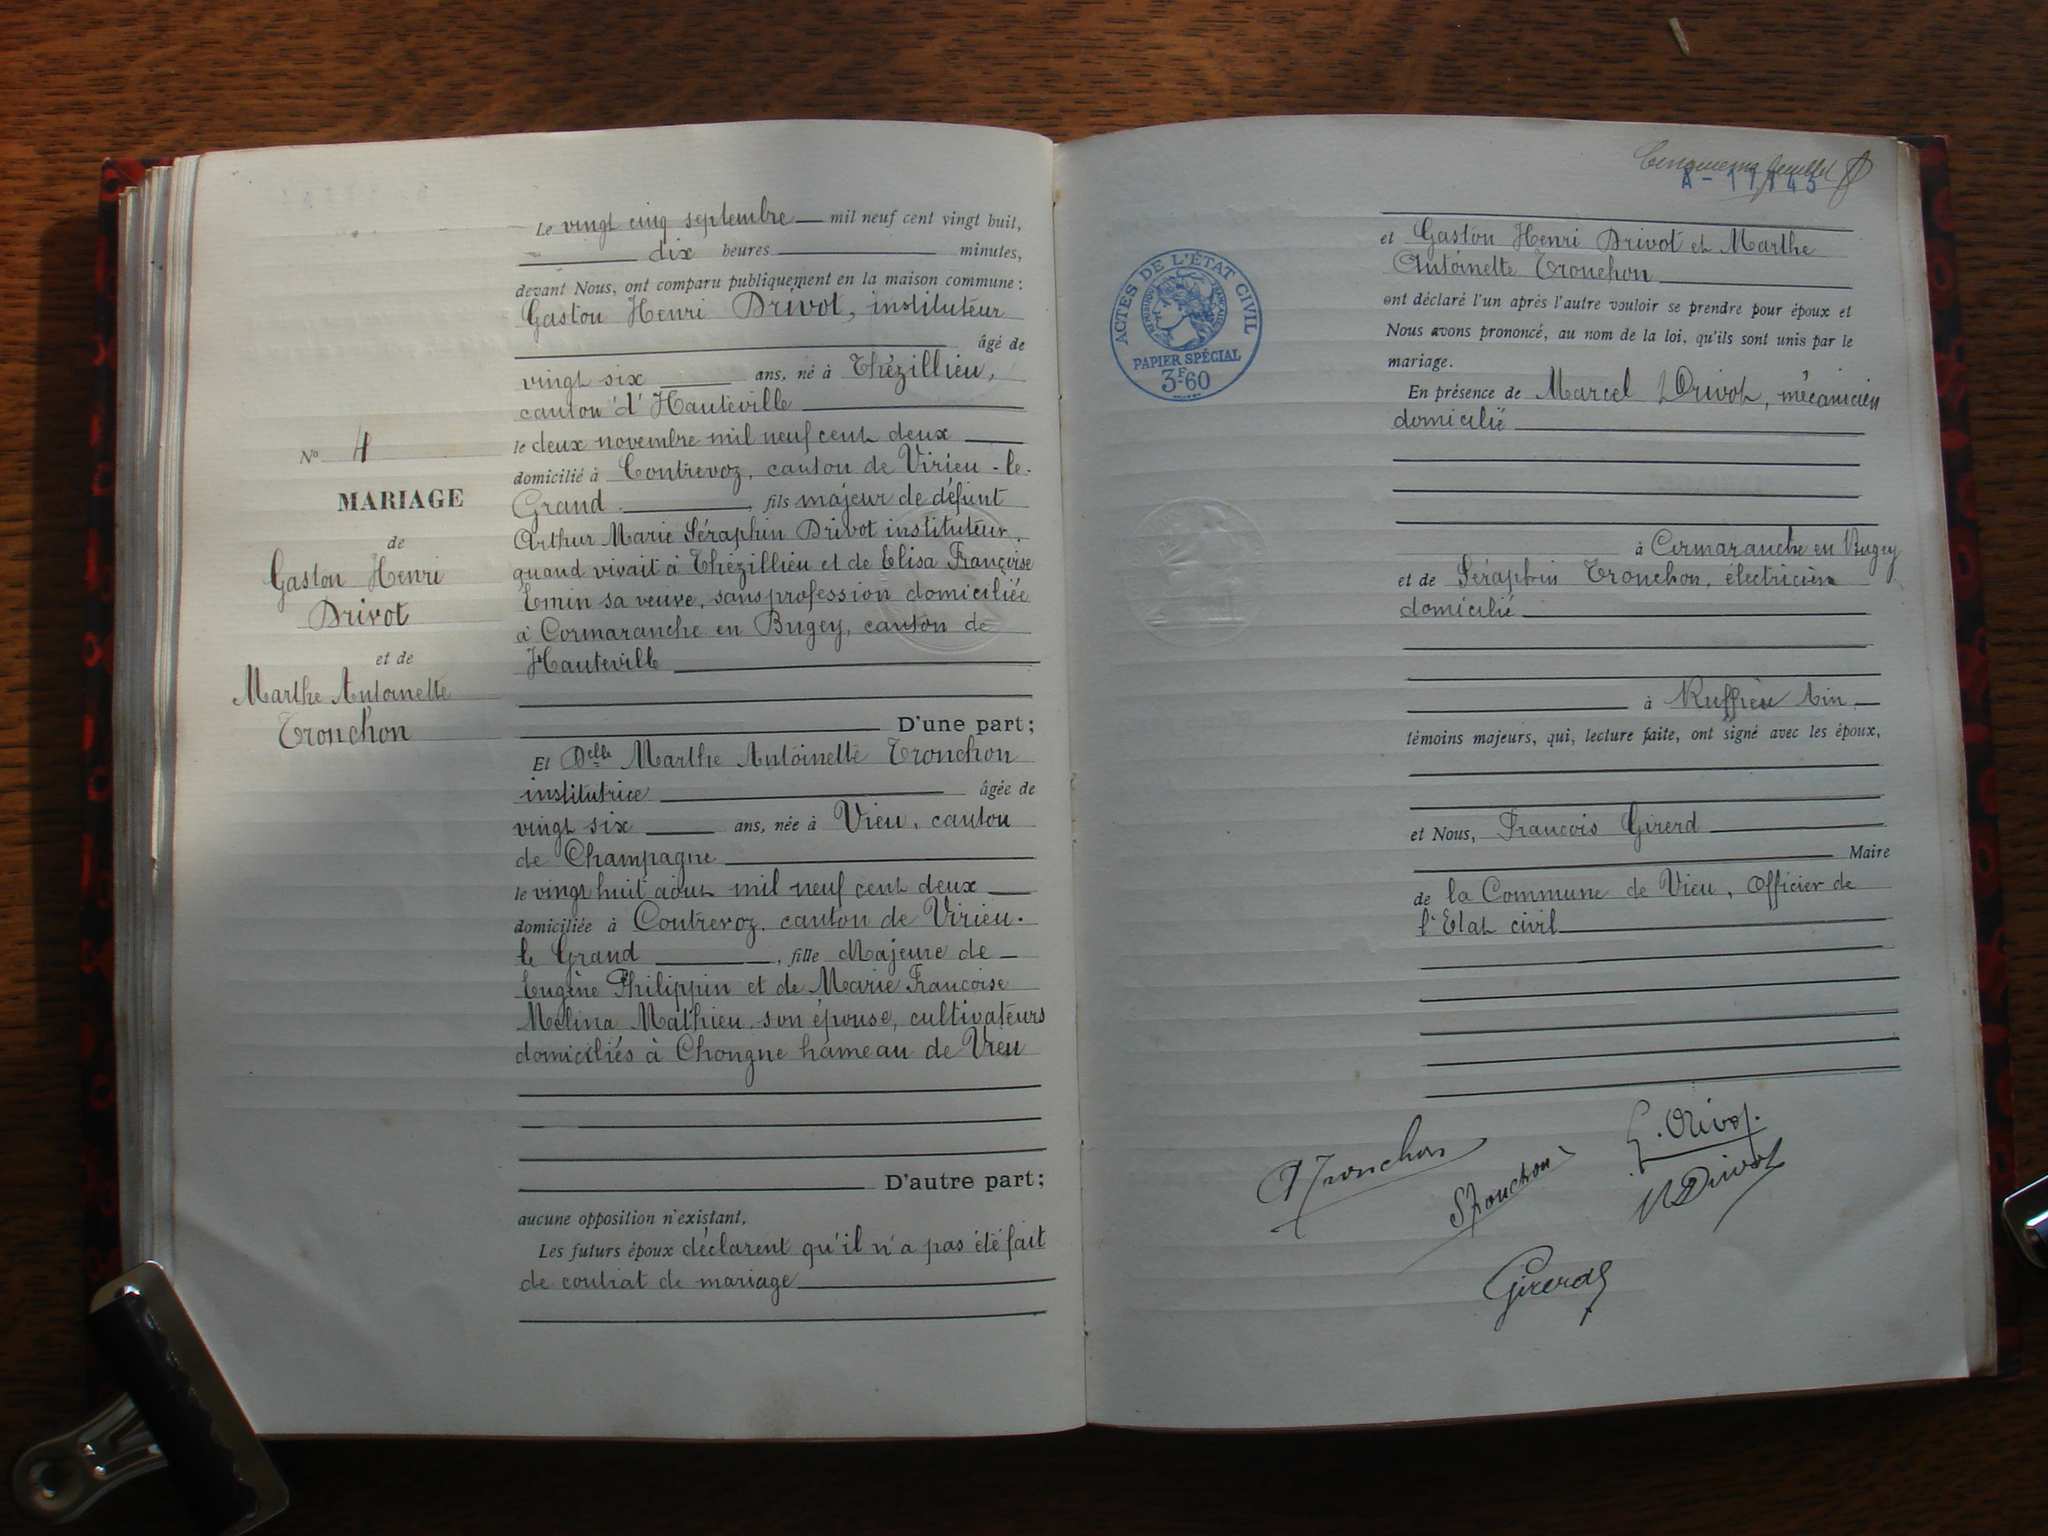 Le vingt cinq septembre mil neuf cent vingt huit,
dix heures minutes,
devant Nous, ont comparu publiquement en la maison commune :
Gaston Henri Drivot, instituteur
âgé de
vingt six ans, né à Thézillieu,
canton d'Hauteville
le deux novembre mil neuf cent deux
domicilié à Contrevoz, canton de Virieu-le-
Grand, fils majeur de défunt
Arthur Marie Séraphin Drivot instituteur,
quand vivait à Thézillieu et de Elisa Françoise
Emin sa veuve, sans profession domiciliée
à Cormaranche en Bugey, canton de
Hauteville
D'une part;
Et Delle Marthe Antoinette Tronchon
institutrice âgée de
vingt six ans, née à Vieu, canton
de Champagne
le vingt huit août mil neuf cent deux
domiciliée à Contrevoz, canton de Virieu-
le Grand, fille Majeure de
Eugène Philippin et de Marie Francoise
Mélina Mathieu son épouse, cultivateurs
domiciliés à Chongne hameau de Vieu
D'autre part;
aucune opposition n'existant,
Les futurs époux déclarent qu'il n'a pas été fait
de contrat de mariage
No 4
MARIAGE
de
Gaston Henri
Drivot
et de
Marthe Antoinette
Tronchon
feuillet
ACTES DE L'ÉTAT CIVIL
RÉPUBLIQUE FRANÇAISE
PAPIER SPÉCIAL
3F60
et Gaston Henri Drivot et Marthe
Antoinette Tronchon
ont déclaré l'un après l'autre vouloir se prendre pour époux et
Nous avons prononcé, au nom de la loi, qu'ils sont unis par le
mariage.
En présence de Marcel Drivot, mécanicien
domicilié
à Cormaranche en Bugey
et de Séraphin Tronchon, électricien
domicilié
à Ruffieu Ain
témoins majeurs, qui, lecture faite, ont signé avec les époux,
et Nous, Francois Girerd
Maire
de la Commune de Vieu, Officier de
l'Etat civil
Tronchon
STronchon
G. Drivot.
M Drivot
Girerd